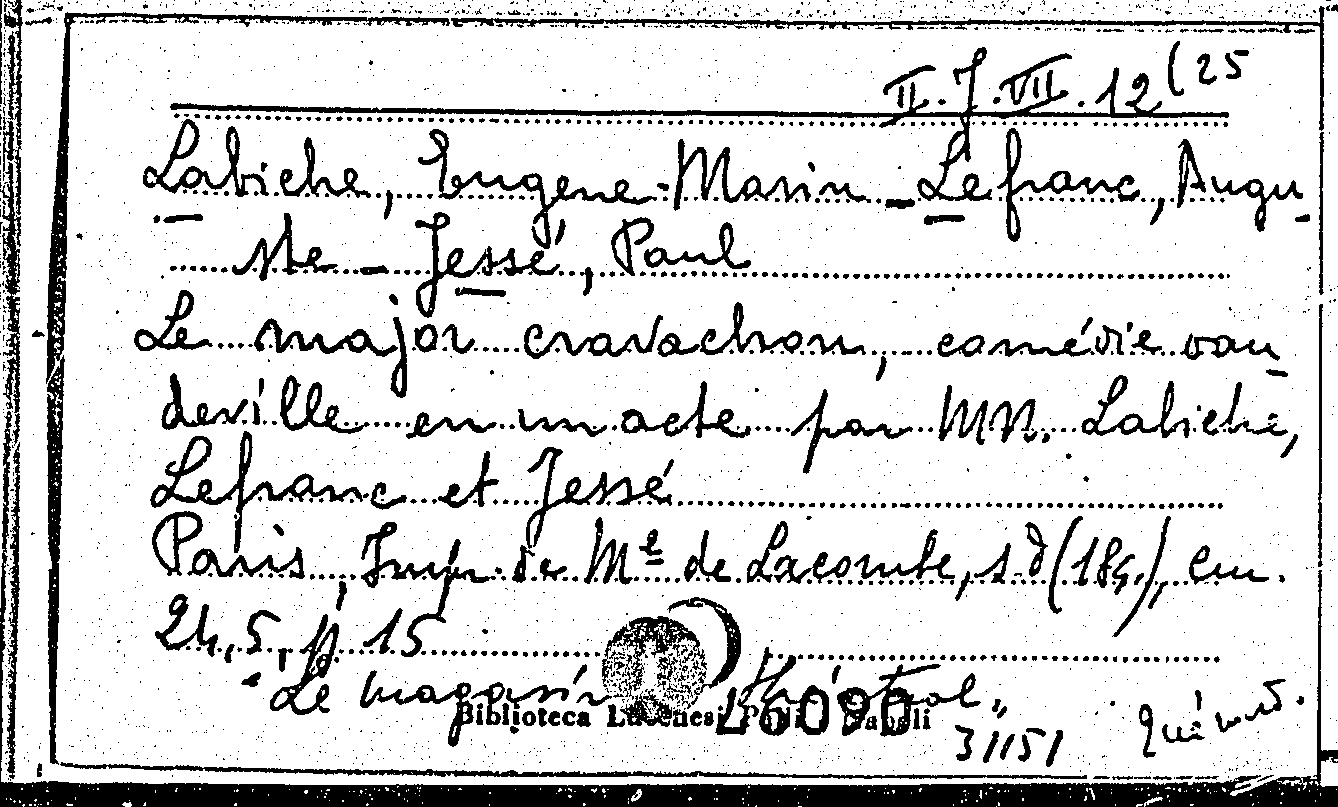 II.J.VII.12(25
Labiche, Eugene-Marin - Lefranc, Augu-
ste - Jessé, Paul
Le major cravachon, comédie vau-
deville en un acte par MM. Labiche,
Lefranc et Jessé
Paris, Imp. de Me de Lacombe, s.d (184.), cm.
24,5, p. 15
"Le magasin théatral"
Biblioteca Lucchesi Palli Napoli
26090
31151